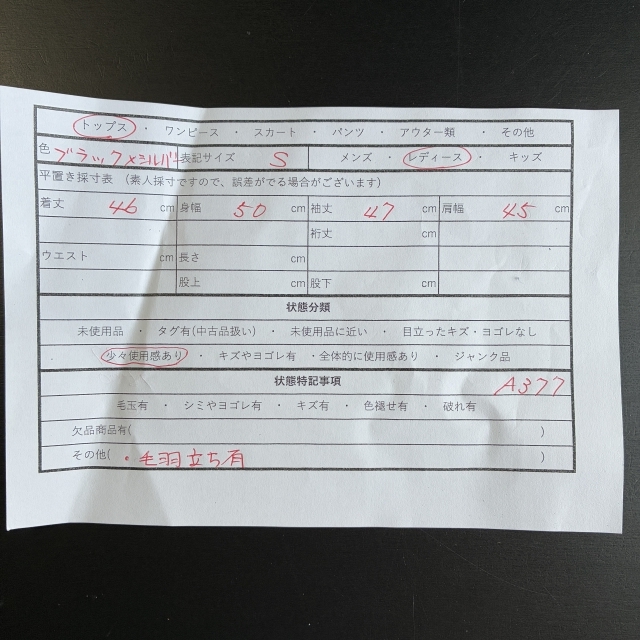 トップス ・ ワンピース ・ スカート ・ パンツ ・ アウター類 ・ その他
色 ブラック×シルバー 表記サイズ S メンズ ・ レディース ・ キッズ
平置き採寸表 （素人採寸ですので、誤差がでる場合がございます）
着丈 46 cm 身幅 50 cm 袖丈 47 cm 肩幅 45 cm
裄丈 cm
ウエスト cm 長さ cm
股上 cm 股下 cm
状態分類
未使用品 ・ タグ有(中古品扱い) ・ 未使用品に近い ・ 目立ったキズ・ヨゴレなし
少々使用感あり ・ キズやヨゴレ有 ・全体的に使用感あり ・ ジャンク品
状態特記事項 A377
毛玉有 ・ シミやヨゴレ有 ・ キズ有 ・ 色褪せ有 ・ 破れ有
欠品商品有( )
その他( ・毛羽立ち有 )